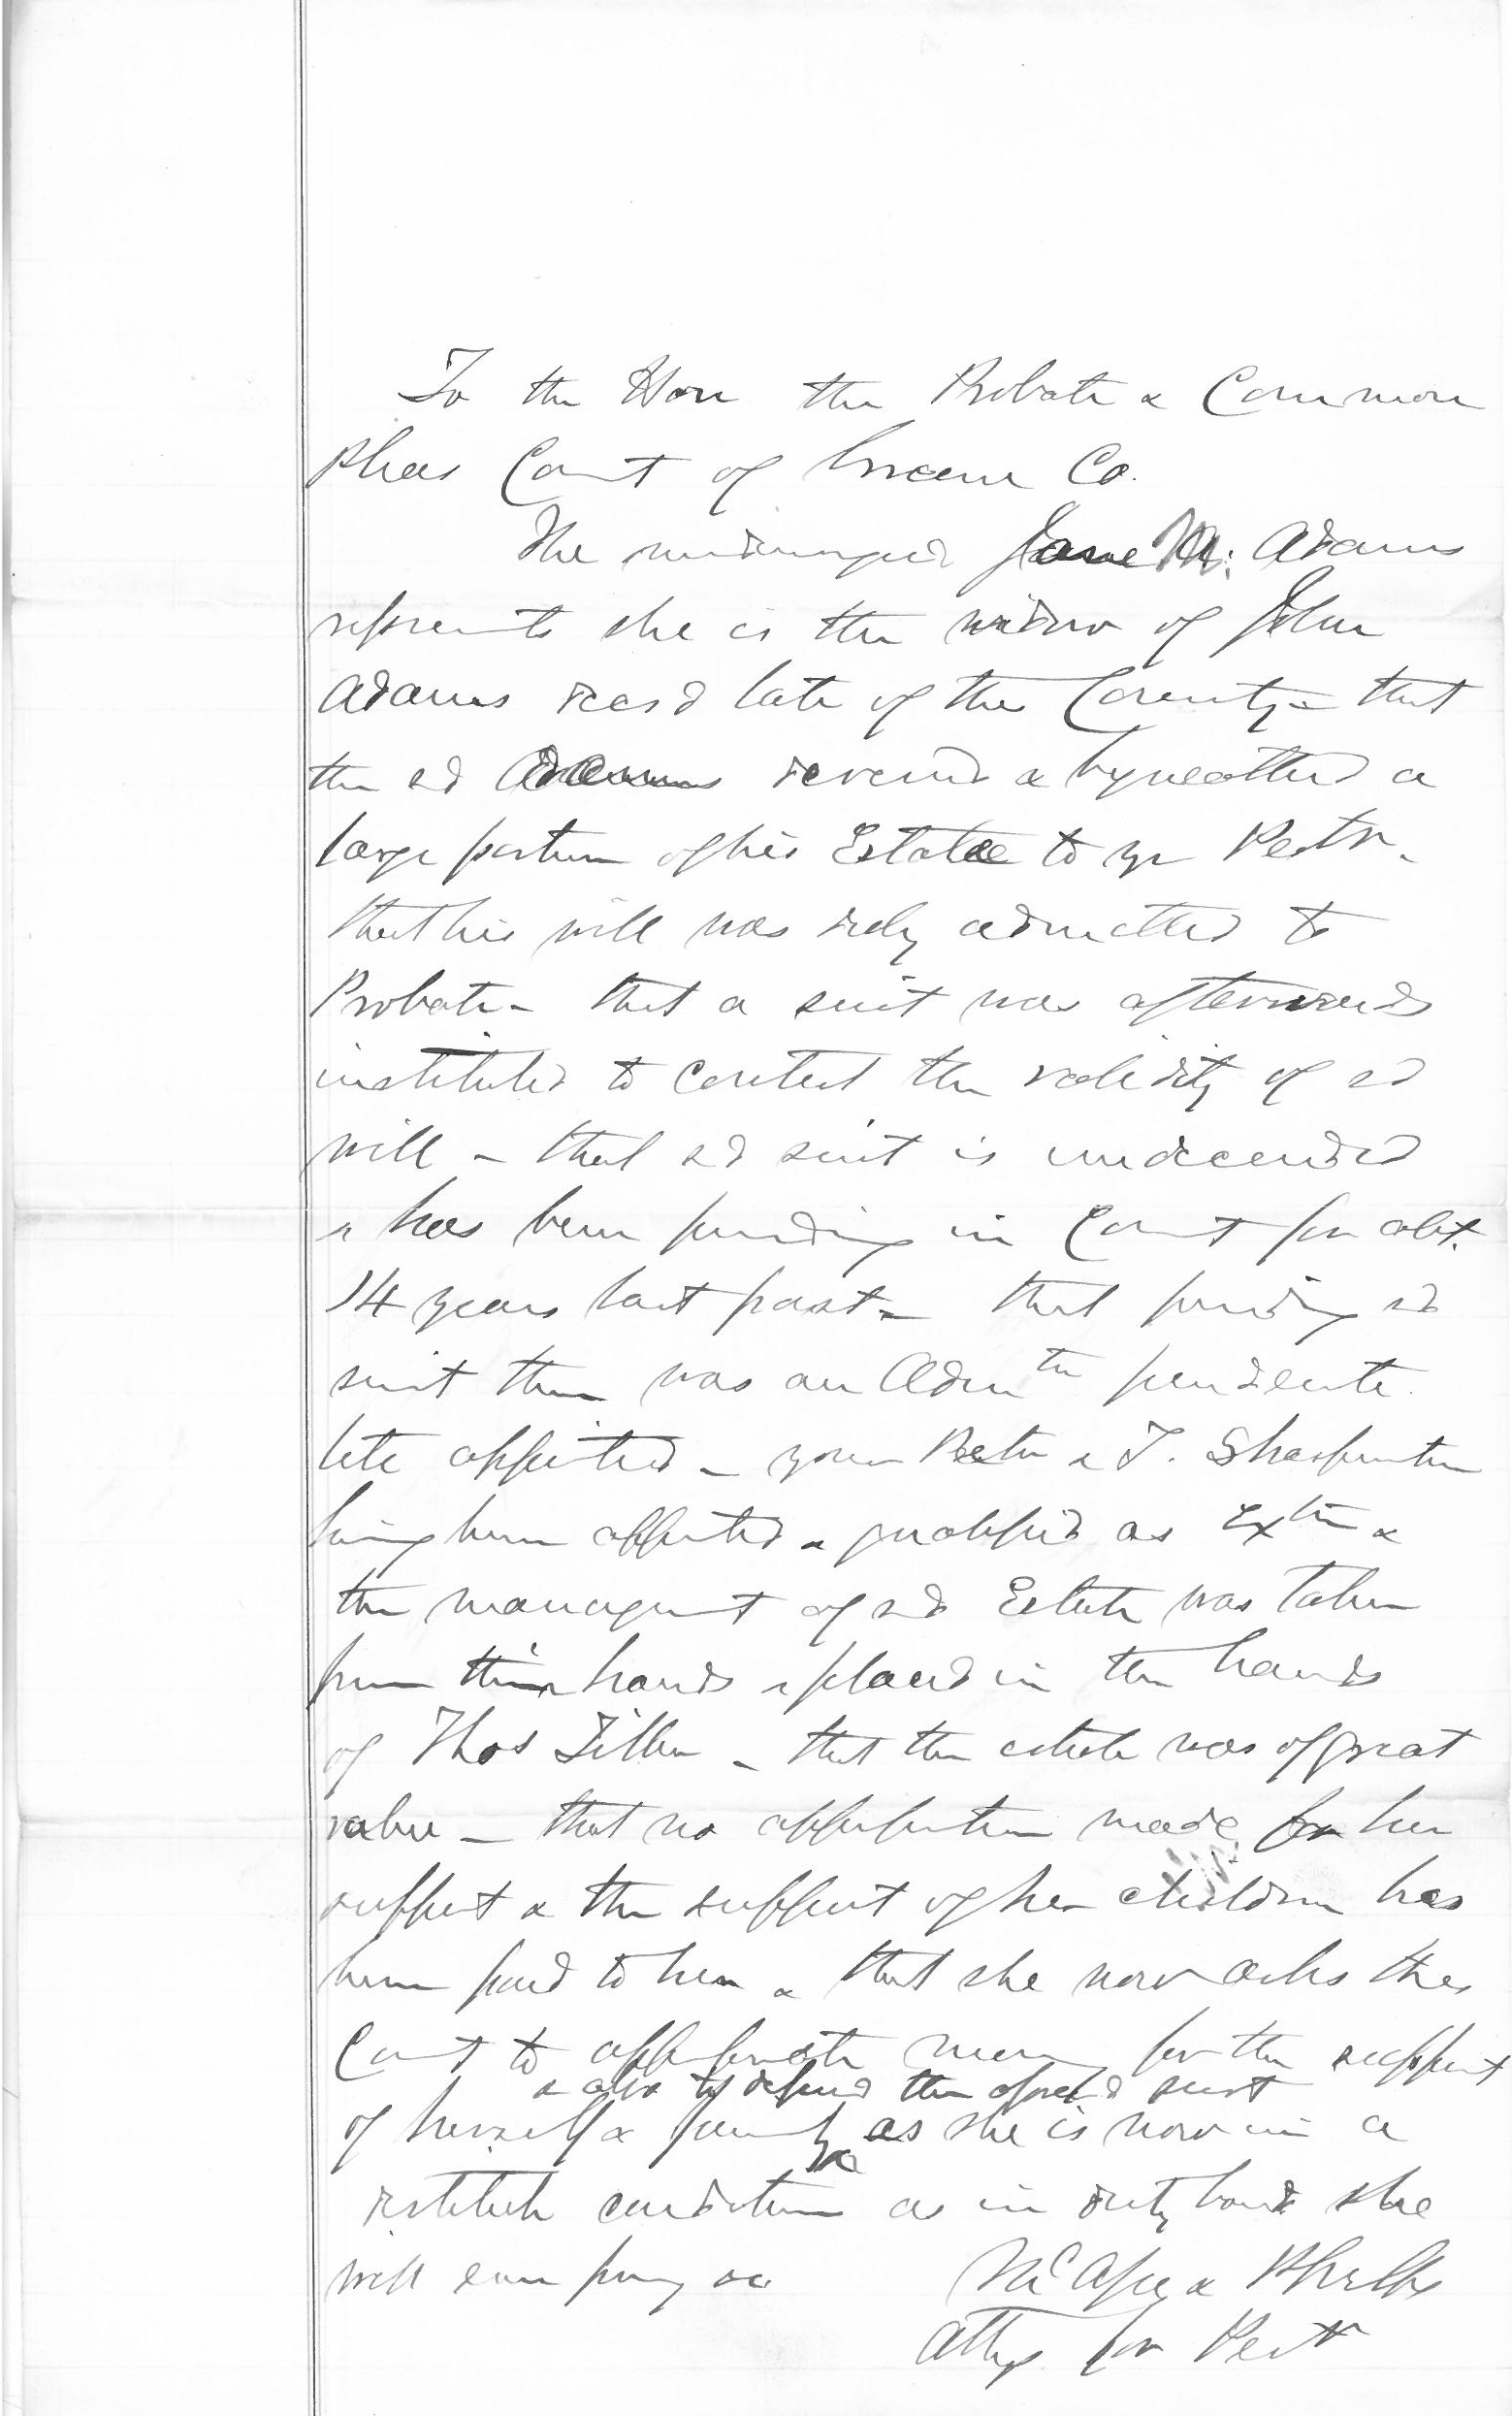 To the Hon the Probate & Common
Pleas Court of Greene Co.
The undersigned Jane M. Adams
represents she is the widow of John
Adams decsd late of the County - that
the sd Adams devised & bequeathed a
large portion of his Estate to yr Petr -
that his will was duly admitted to
Probate - that a suit was afterwards
instituted to contest the validity of sd
will - that sd suit is undecided
& has been pending in Court for abt.
14 years last past - that pending sd
suit there was an Admtr pendente
lite appointed - your Petr & T. Sharpenten
having been appointed & qualified as Extrs &
the management of sd Estate was taken
from their hands & placed in the hands
of Thos Tiller - that the estate was of great
value - that no appropriation made for her
support & the support of her children has
been paid to her & that she now asks the
Court to appropriate money for the support
& also to defend the aforesd suit
of herself & family as she is now in a
destitute condition as in duty bound she
will ever pray &c McAfee & Phelps
Attys for Petr